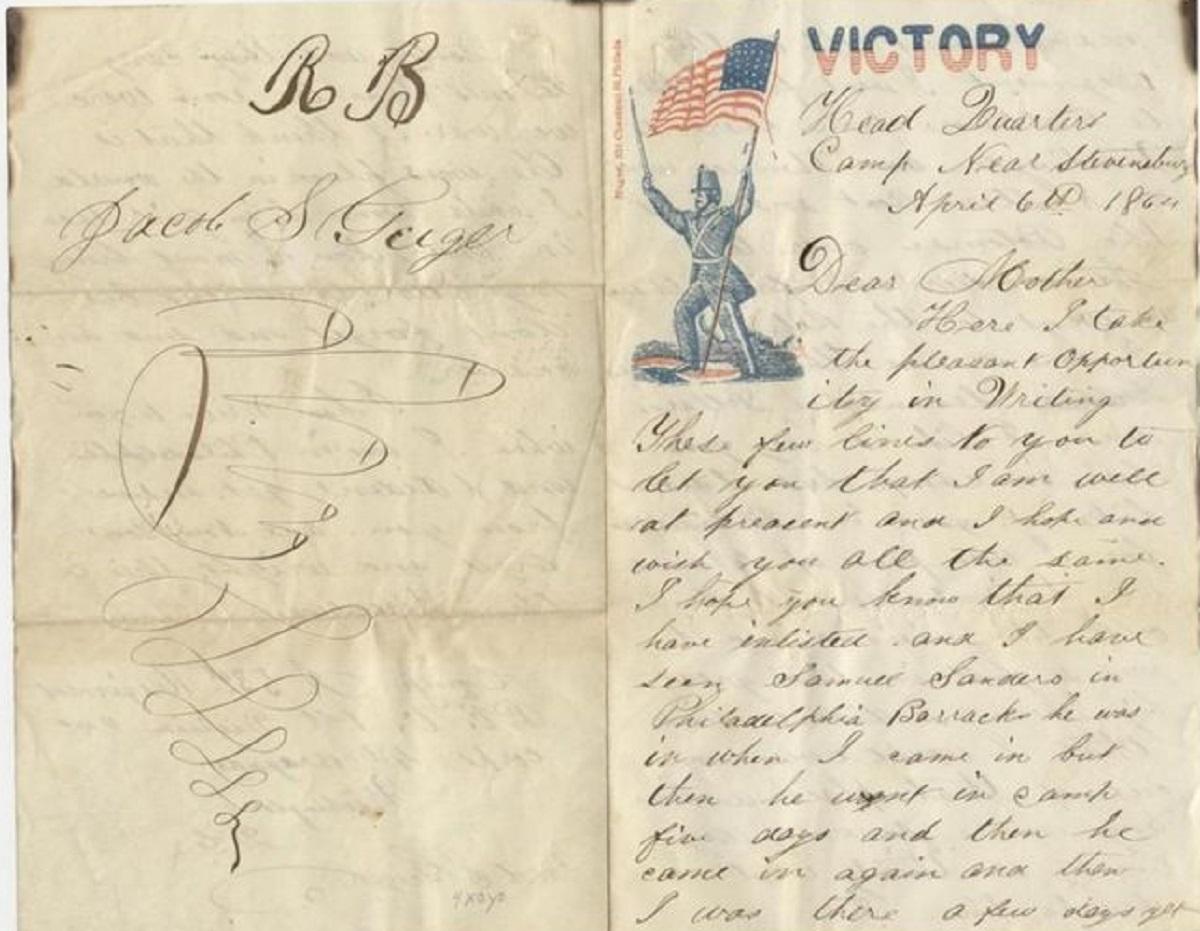 R B
Jacob S Geiger
VICTORY
Head Quarters
Camp Near Stevensburg
April 6th 1864
Dear Mother
Here I take
the pleasant Opportun
ity in Writing
These few lines to you to
let you that I am well
at preacent and I hope and
wish you all the same.
I hope you know that I
have inlisted and I have
seen Samuel Sanders in
Philadelphia Barracks he was
in when I came in but
then he went in camp
five days and then he
came in again and then
I was there a few days yet